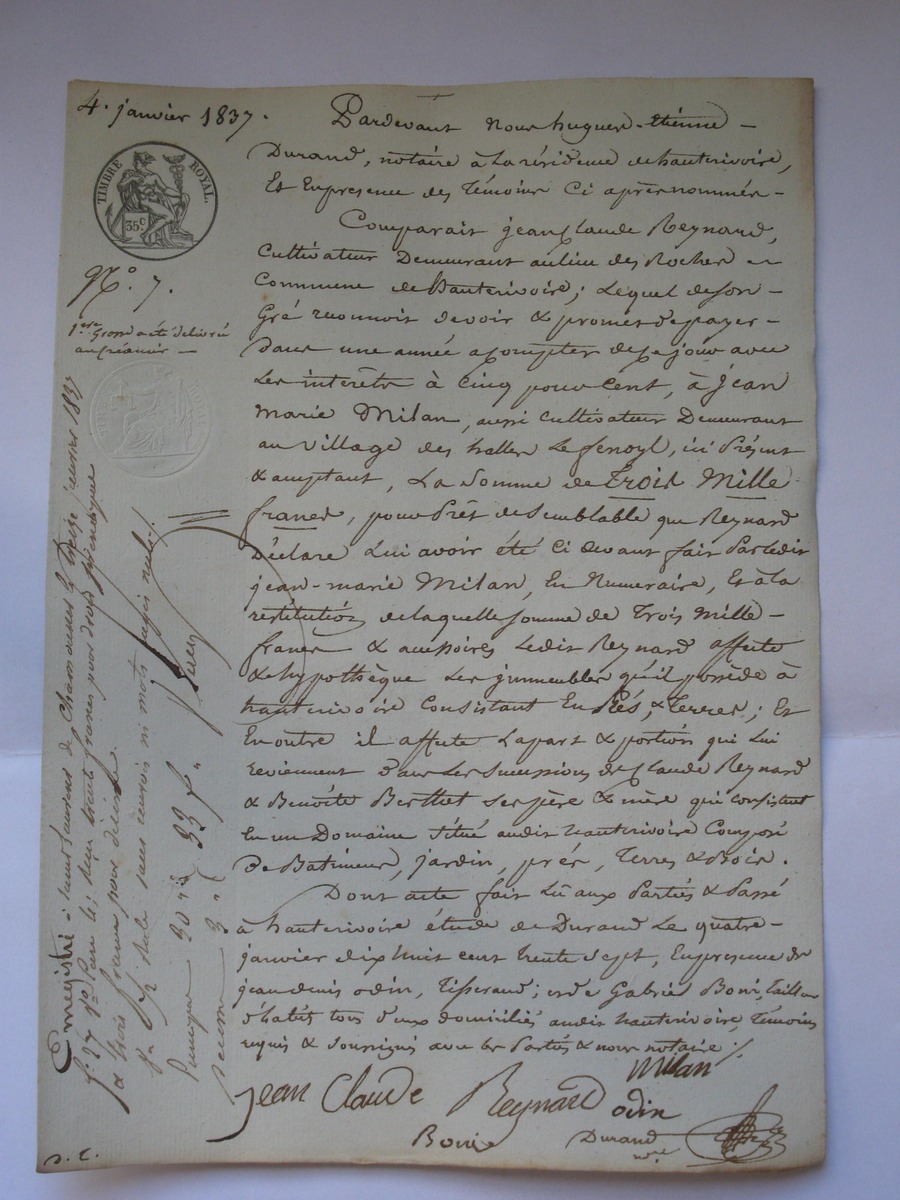 4. janvier 1837.
TIMBRE ROYAL.
35 c.
N.o 7.
1ere Grosse a été délivrée
au créancier —
Pardevant Nous hugues Etienne —
Durand, notaire à La résidence de hauterivoire,
Et En présence des témoins Ci après nommés —
Comparait jean Claude Reynard,
Cultivateur Demeurant au lieu des Rocher
Commune de hauterivoire; Lequel de son
Gré reconnoit devoir & promet de payer —
dans une année à compter de ce jour avec
Les intérêts à cinq pour Cent, à jean
Marie Milan, aussi Cultivateur Demeurant
au village des halles Le fenoyl, ici Présent
& acceptant, La Somme de Trois Mille
francs, pour Prêt de Semblable que Reynard
Déclare Lui avoir été Ci devant fait Par Ledit
jean-marie Milan, En Numeraire, Et à la
restitution de laquelle somme de Trois Mille —
francs & accessoires Ledit Reynard affecte
& hypothèque Les immeubles qu'il possède à
hauterivoire Consistant En Prés, & Terres; Et
En outre il affecte La part & portion qui Lui
reviennent dans Les Successions de Claude Reynard
& Benoîte Berthet ses père & mère qui consistent
En un Domaine situé audit hauterivoire Composé
De Batiments, jardin, prés, Terres & Bois.
Dont acte fait Lû aux Parties & Passé
à hauterivoire étude de Durand Le quatre —
janvier dix huit cent trente sept, En présence de
jean denis odin, Tisserand; et de Gabriel Boni, tailleur
d'habits tous deux domiciliés audit hauterivoire, témoins
requis & soussignés avec les Parties & nous notaire.
Milan
jean Claude Reynard odin
Boni Durand
nre
Enregistré à saint Laurent de Chamousset le treize janvier 1837
f.o 27 r.o case 4; reçu trente francs pour droit
& trois francs pour décime.
sans renvois ni mots rayés nuls.
30 "
3 "
33 f "